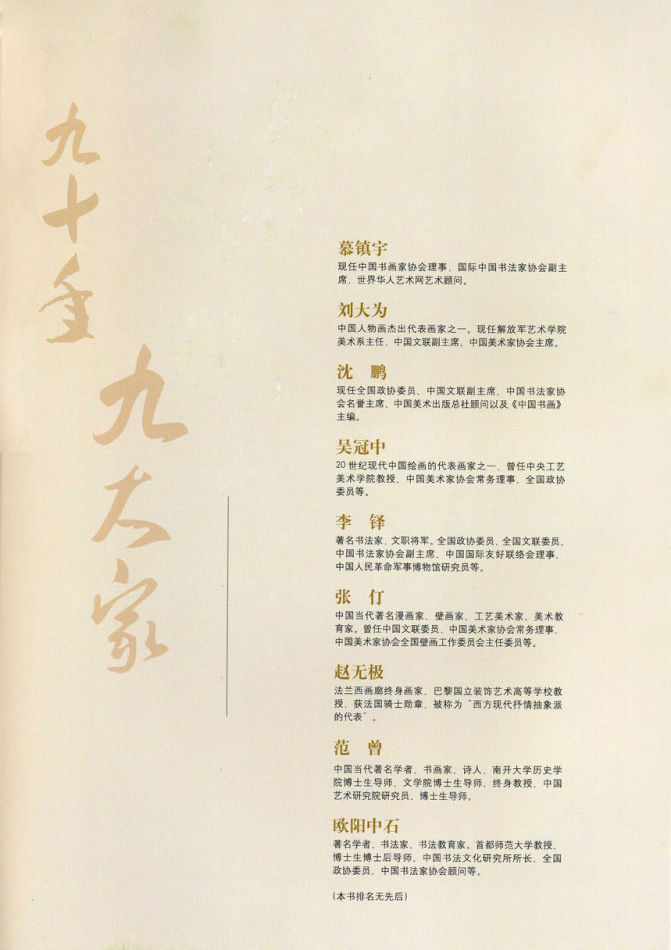 九十年
九大家
慕镇宇
现任中国书画家协会理事，国际中国书法家协会副主
席，世界华人艺术网艺术顾问。
刘大为
中国人物画杰出代表画家之一。现任解放军艺术学院
美术系主任，中国文联副主席、中国美术家协会主席。
沈 鹏
现任全国政协委员、中国文联副主席、中国书法家协
会名誉主席，中国美术出版总社顾问以及《中国书画》
主编。
吴冠中
20世纪现代中国绘画的代表画家之一，曾任中央工艺
美术学院教授、中国美术家协会常务理事，全国政协
委员等。
李 铎
著名书法家，文职将军。全国政协委员，全国文联委员，
中国书法家协会副主席，中国国际友好联络会理事，
中国人民革命军事博物馆研究员等。
张 仃
中国当代著名漫画家、壁画家、工艺美术家、美术教
育家。曾任中国文联委员，中国美术家协会常务理事，
中国美术家协会全国壁画工作委员会主任委员等。
赵无极
法兰西画廊终身画家、巴黎国立装饰艺术高等学校教
授，获法国骑士勋章，被称为“西方现代抒情抽象派
的代表”。
范 曾
中国当代著名学者、书画家、诗人，南开大学历史学
院博士生导师、文学院博士生导师，终身教授，中国
艺术研究院研究员、博士生导师。
欧阳中石
著名学者、书法家、书法教育家。首都师范大学教授、
博士生博士后导师、中国书法文化研究所所长、全国
政协委员、中国书法家协会顾问等。
(本书排名无先后)